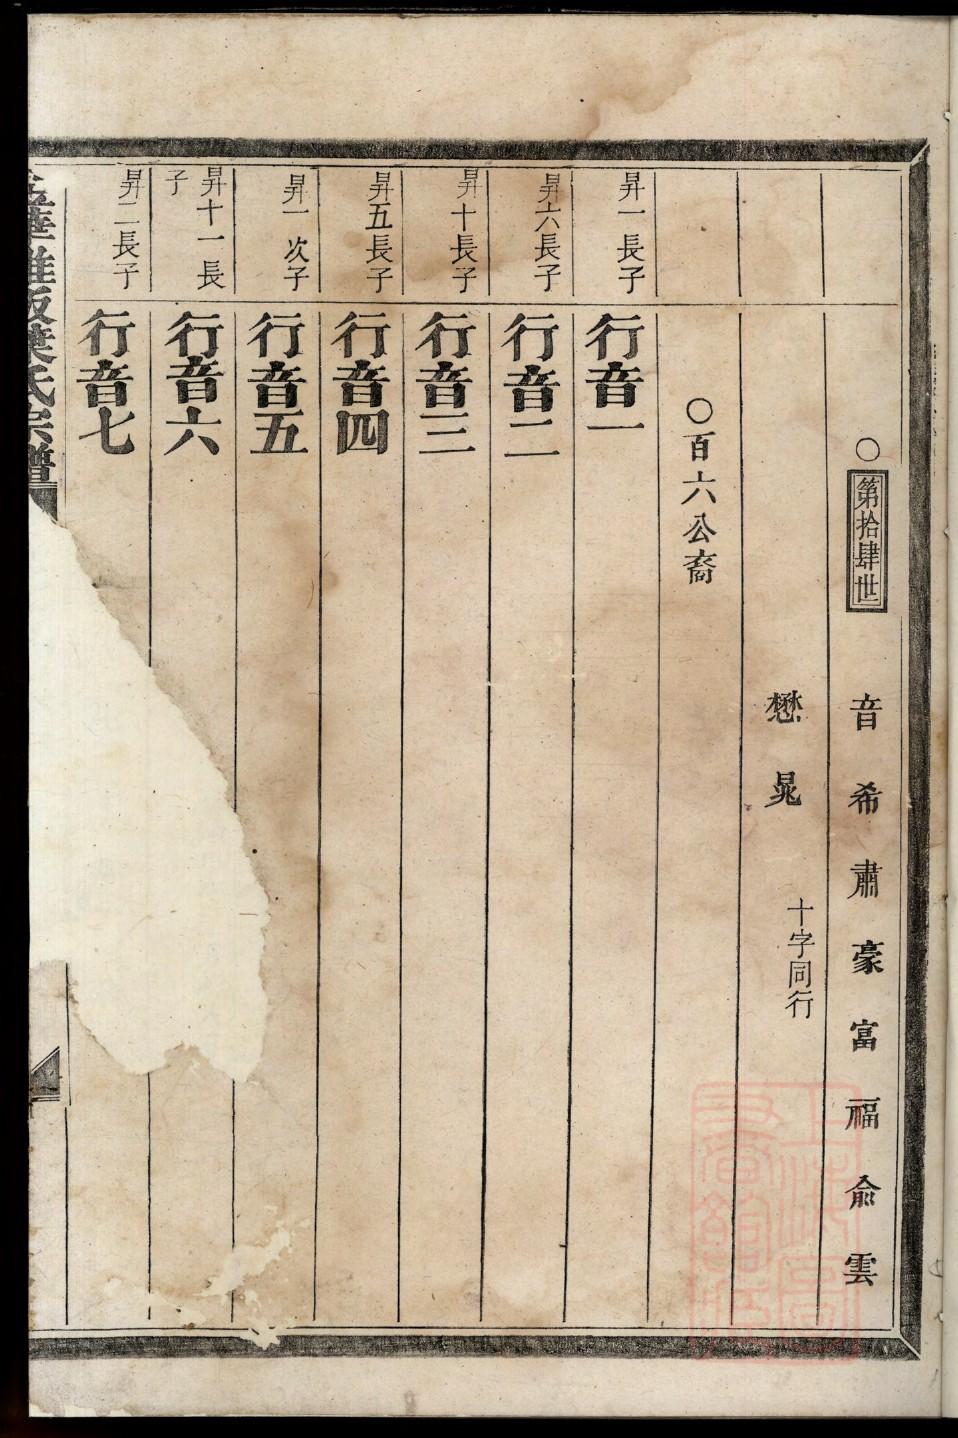 ○第拾肆世 音希肅豪富福俞雲
懋晃 十字同行
○百六公裔
昇一長子 行音一
昇六長子 行音二
昇十長子 行音三
昇五長子 行音四
昇一次子 行音五
昇十一長子 行音六
昇二長子 行音七
華雅畈葉氏宗譜